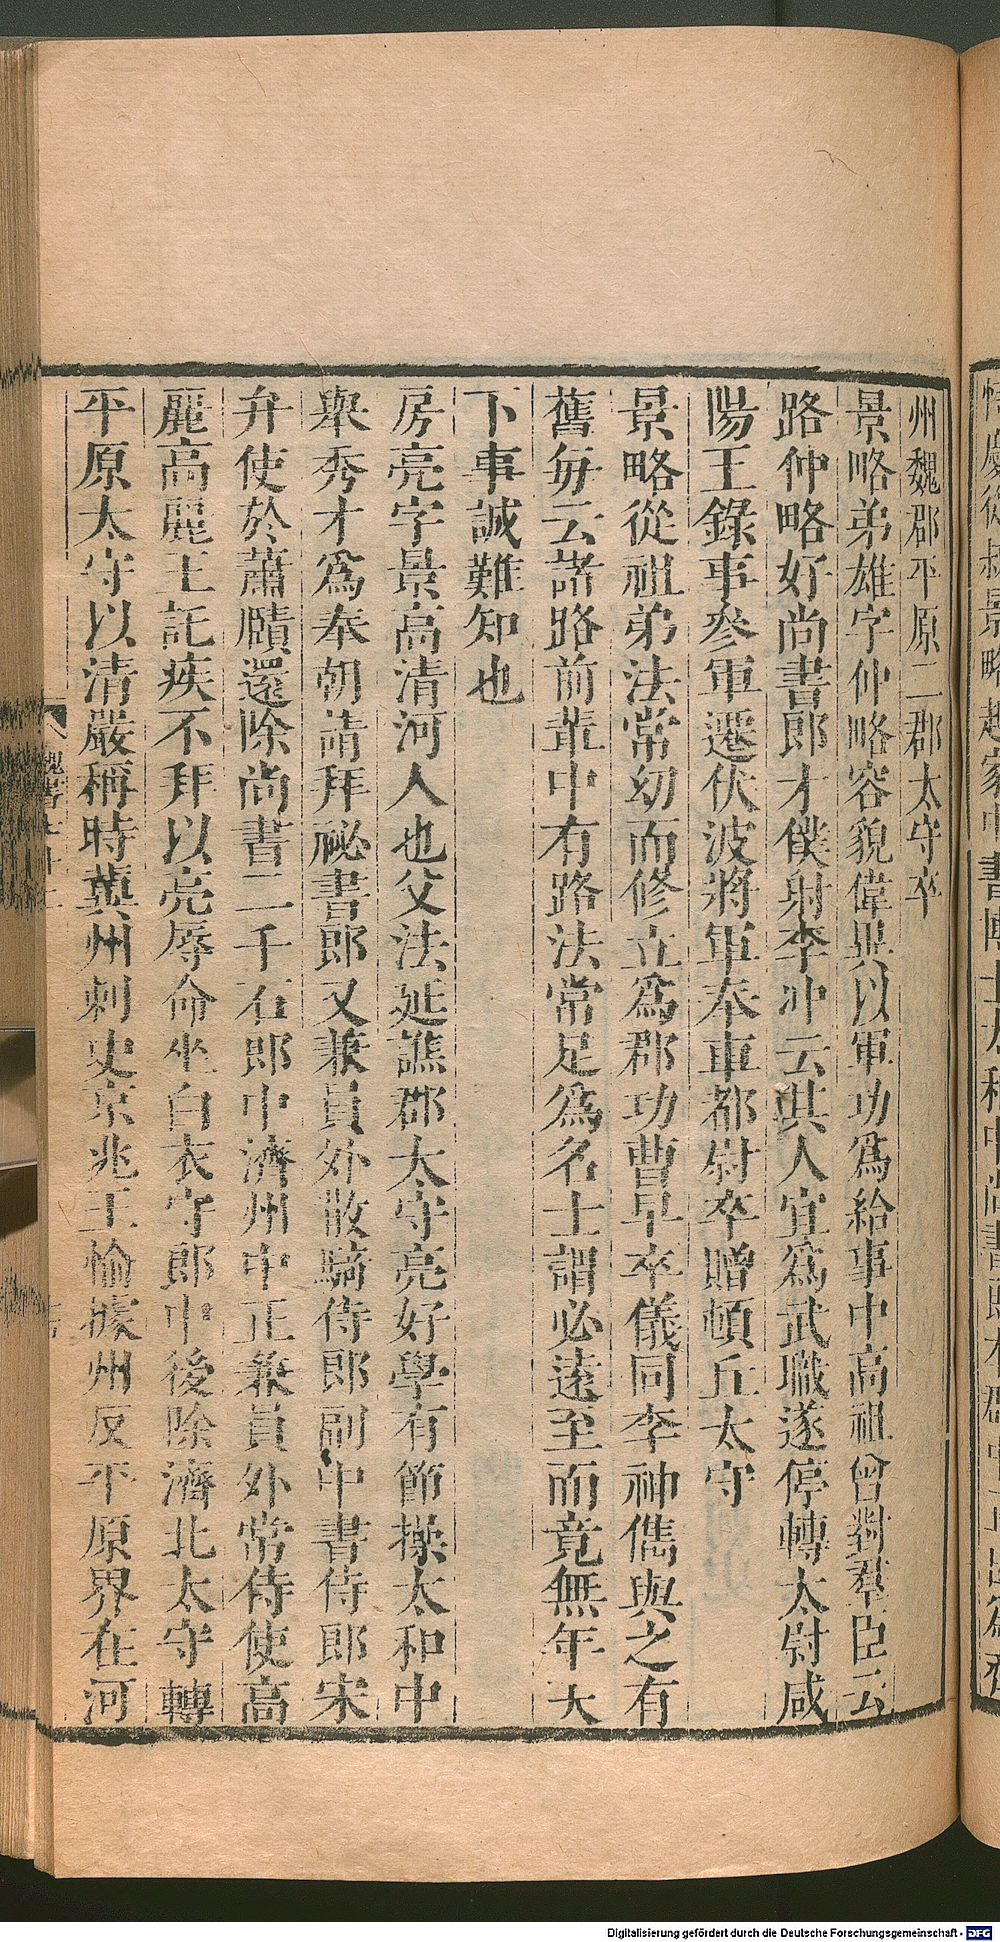 州魏郡平原二郡太守卒
景略弟雄字仲略容貌偉異以軍功爲給事中高祖曾對羣臣云
路仲略好尚書郎才僕射李沖云其人宜爲武職遂停轉太尉咸
陽王錄事參軍遷伏波將軍奉車都尉卒贈頓丘太守
景略從祖弟法常幼而修立爲郡功曹早卒儀同李神儁與之有
舊每云諸路前輩中有路法常足爲名士謂必遠至而竟無年天
下事誠難知也
房亮字景高清河人也父法延譙郡太守亮好學有節操太和中
舉秀才爲奉朝請拜祕書郎又兼員外散騎侍郎副中書侍郎宋
弁使於蕭賾還除尚書二千石郎中濟州中正兼員外常侍使高
麗高麗王託疾不拜以亮辱命坐白衣守郎中後除濟北太守轉
平原太守以清嚴稱時冀州刺史京兆王愉據州反平原界在河
魏書
Digitalisierung gefördert durch die Deutsche Forschungsgemeinschaft - DFG